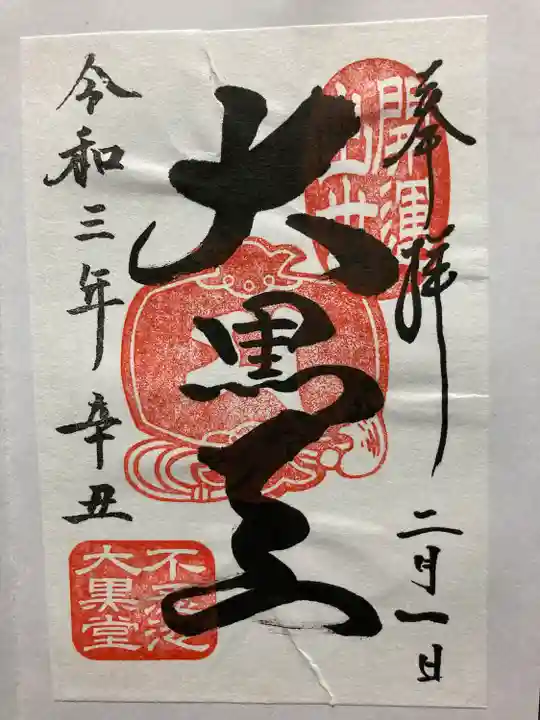 奉拝
二月一日
開運
出世
大黒天
令和三年辛丑
不忍池
大黒堂